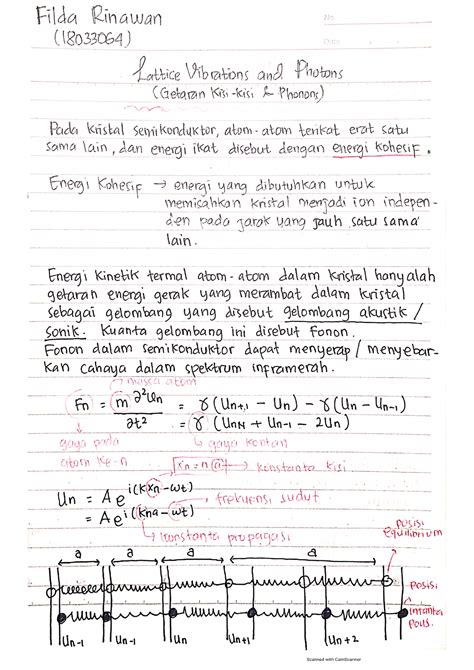 Filda Rinawan
(18033064)
No.
Date
Lattice Vibrations and Photons
(Getaran Kisi-kisi & Phonons)
Pada kristal semikonduktor, atom-atom terikat erat satu
sama lain, dan energi ikat disebut dengan energi kohesif.
Energi Kohesif → energi yang dibutuhkan untuk
memisahkan kristal menjadi ion indepen-
den pada jarak yang jauh satu sama
lain.
Energi kinetik termal atom-atom dalam kristal hanyalah
getaran energi gerak yang merambat dalam kristal
sebagai gelombang yang disebut gelombang akustik /
sonik. Kuanta gelombang ini disebut Fonon.
Fonon dalam semikonduktor dapat menyerap / menyebar-
kan cahaya dalam spektrum inframerah.
→ massa atom
Fn = m ∂²Un / ∂t² = γ (Un+1 - Un) - γ (Un - Un-1)
= γ (Un+1 + Un-1 - 2Un)
gaya pada
atom ke-n
xn = n a → konstanta kisi
Un = A e^i(kxn-ωt) → frekuensi sudut
= A e^i(kna-ωt)
→ konstanta propagasi
posisi
equilibrium
a a a a
posisi
Un-1 Un-1 Un Un+1 Un+2
Scanned with CamScanner